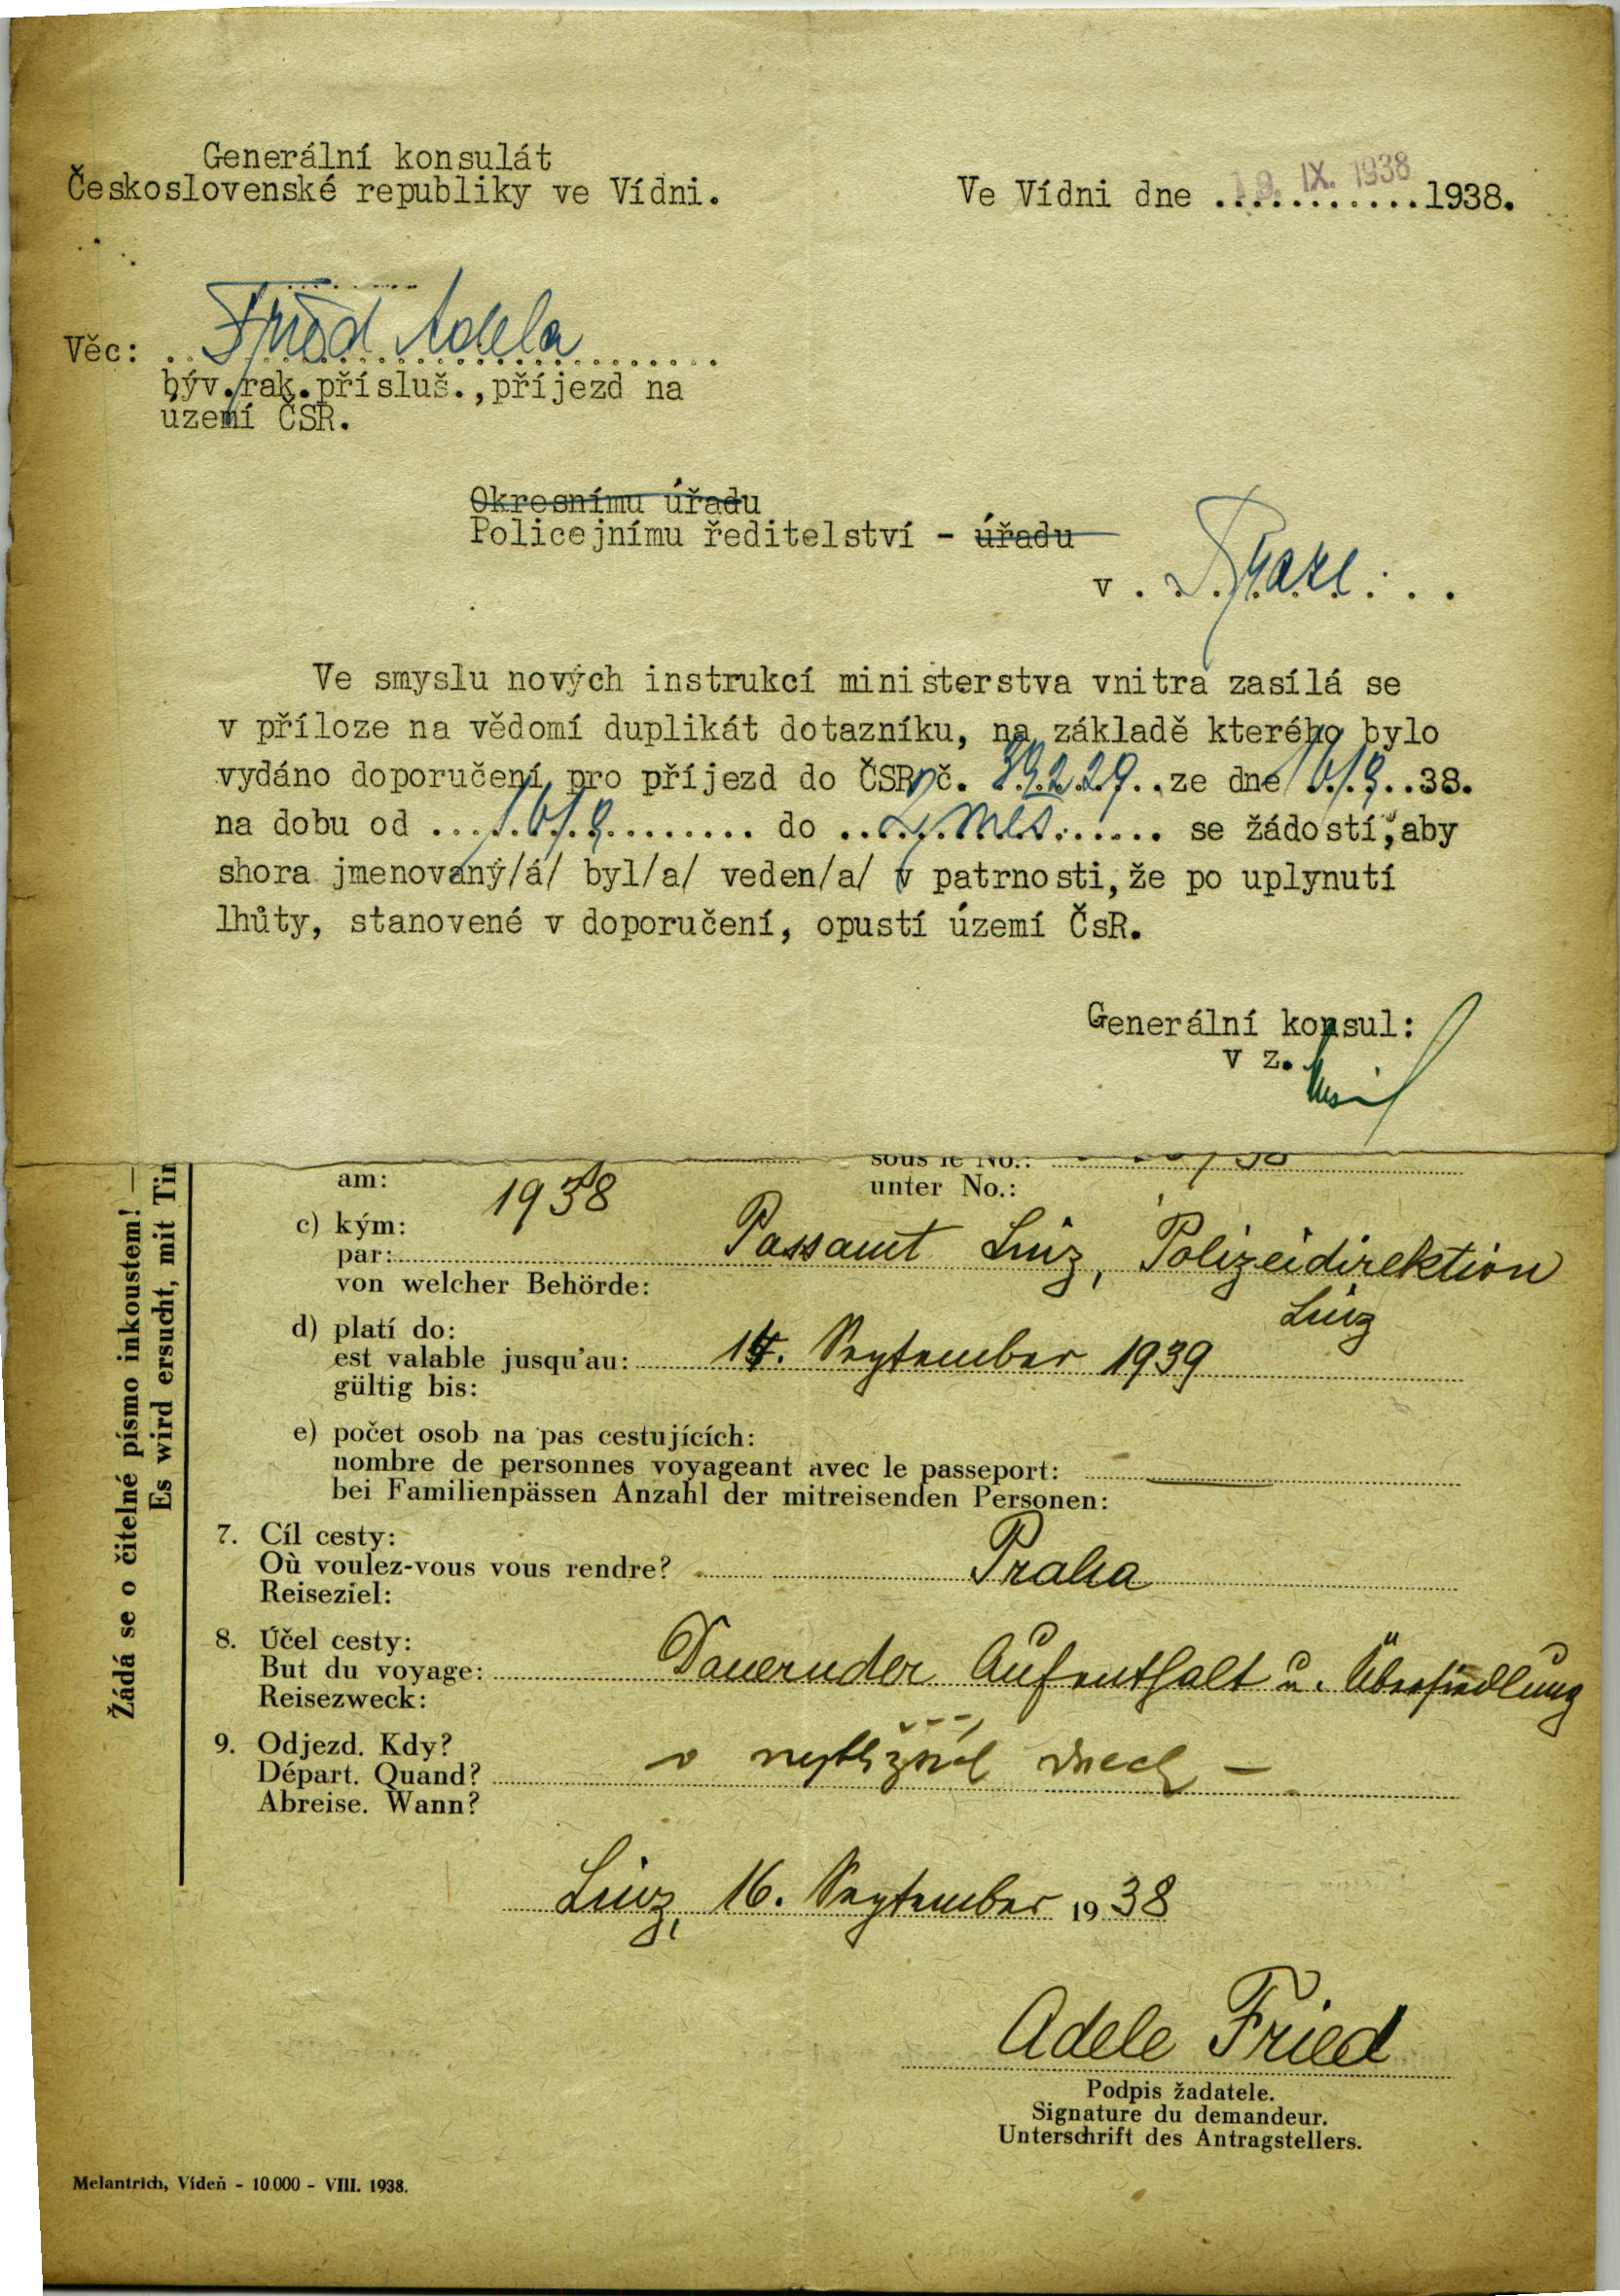 Generální konsulát
Československé republiky ve Vídni.
Ve Vídni dne ...........1938.
19. IX. 1938
Fried Adela
Věc:
býv.rak.přísluš.,příjezd na
území ČSR.
Okresnímu úřadu
Policejnímu ředitelství - úřadu
v Praze
Ve smyslu nových instrukcí ministerstva vnitra zasílá se
v příloze na vědomí duplikát dotazníku, na základě kterého bylo
vydáno doporučení pro příjezd do ČSR č. ze dne 16/9..38.
na dobu od ...16/9......... do ... měs....... se žádostí, aby
shora jmenovaný/á/ byl/a/ veden/a/ v patrnosti, že po uplynutí
lhůty, stanovené v doporučení, opustí území ČsR.
Generální konsul:
v z.
Žádá se o čitelné písmo inkoustem! —
Es wird ersucht, mit Tin
sous le No.:
am: 1938 unter No.:
c) kým:
par: Passamt Linz, Polizeidirektion
von welcher Behörde: Linz
d) platí do:
est valable jusqu'au: 14. September 1939
gültig bis:
e) počet osob na pas cestujících:
nombre de personnes voyageant avec le passeport: —
bei Familienpässen Anzahl der mitreisenden Personen:
7. Cíl cesty:
Où voulez-vous vous rendre? Praha
Reiseziel:
8. Účel cesty:
But du voyage: Dauernder Aufenthalt u. Übersiedlung
Reisezweck:
9. Odjezd. Kdy?
Départ. Quand? v nejbližších dnech —
Abreise. Wann?
Linz, 16. September 1938
Adele Fried
Podpis žadatele.
Signature du demandeur.
Unterschrift des Antragstellers.
Melantrich, Vídeň - 10.000 - VIII. 1938.